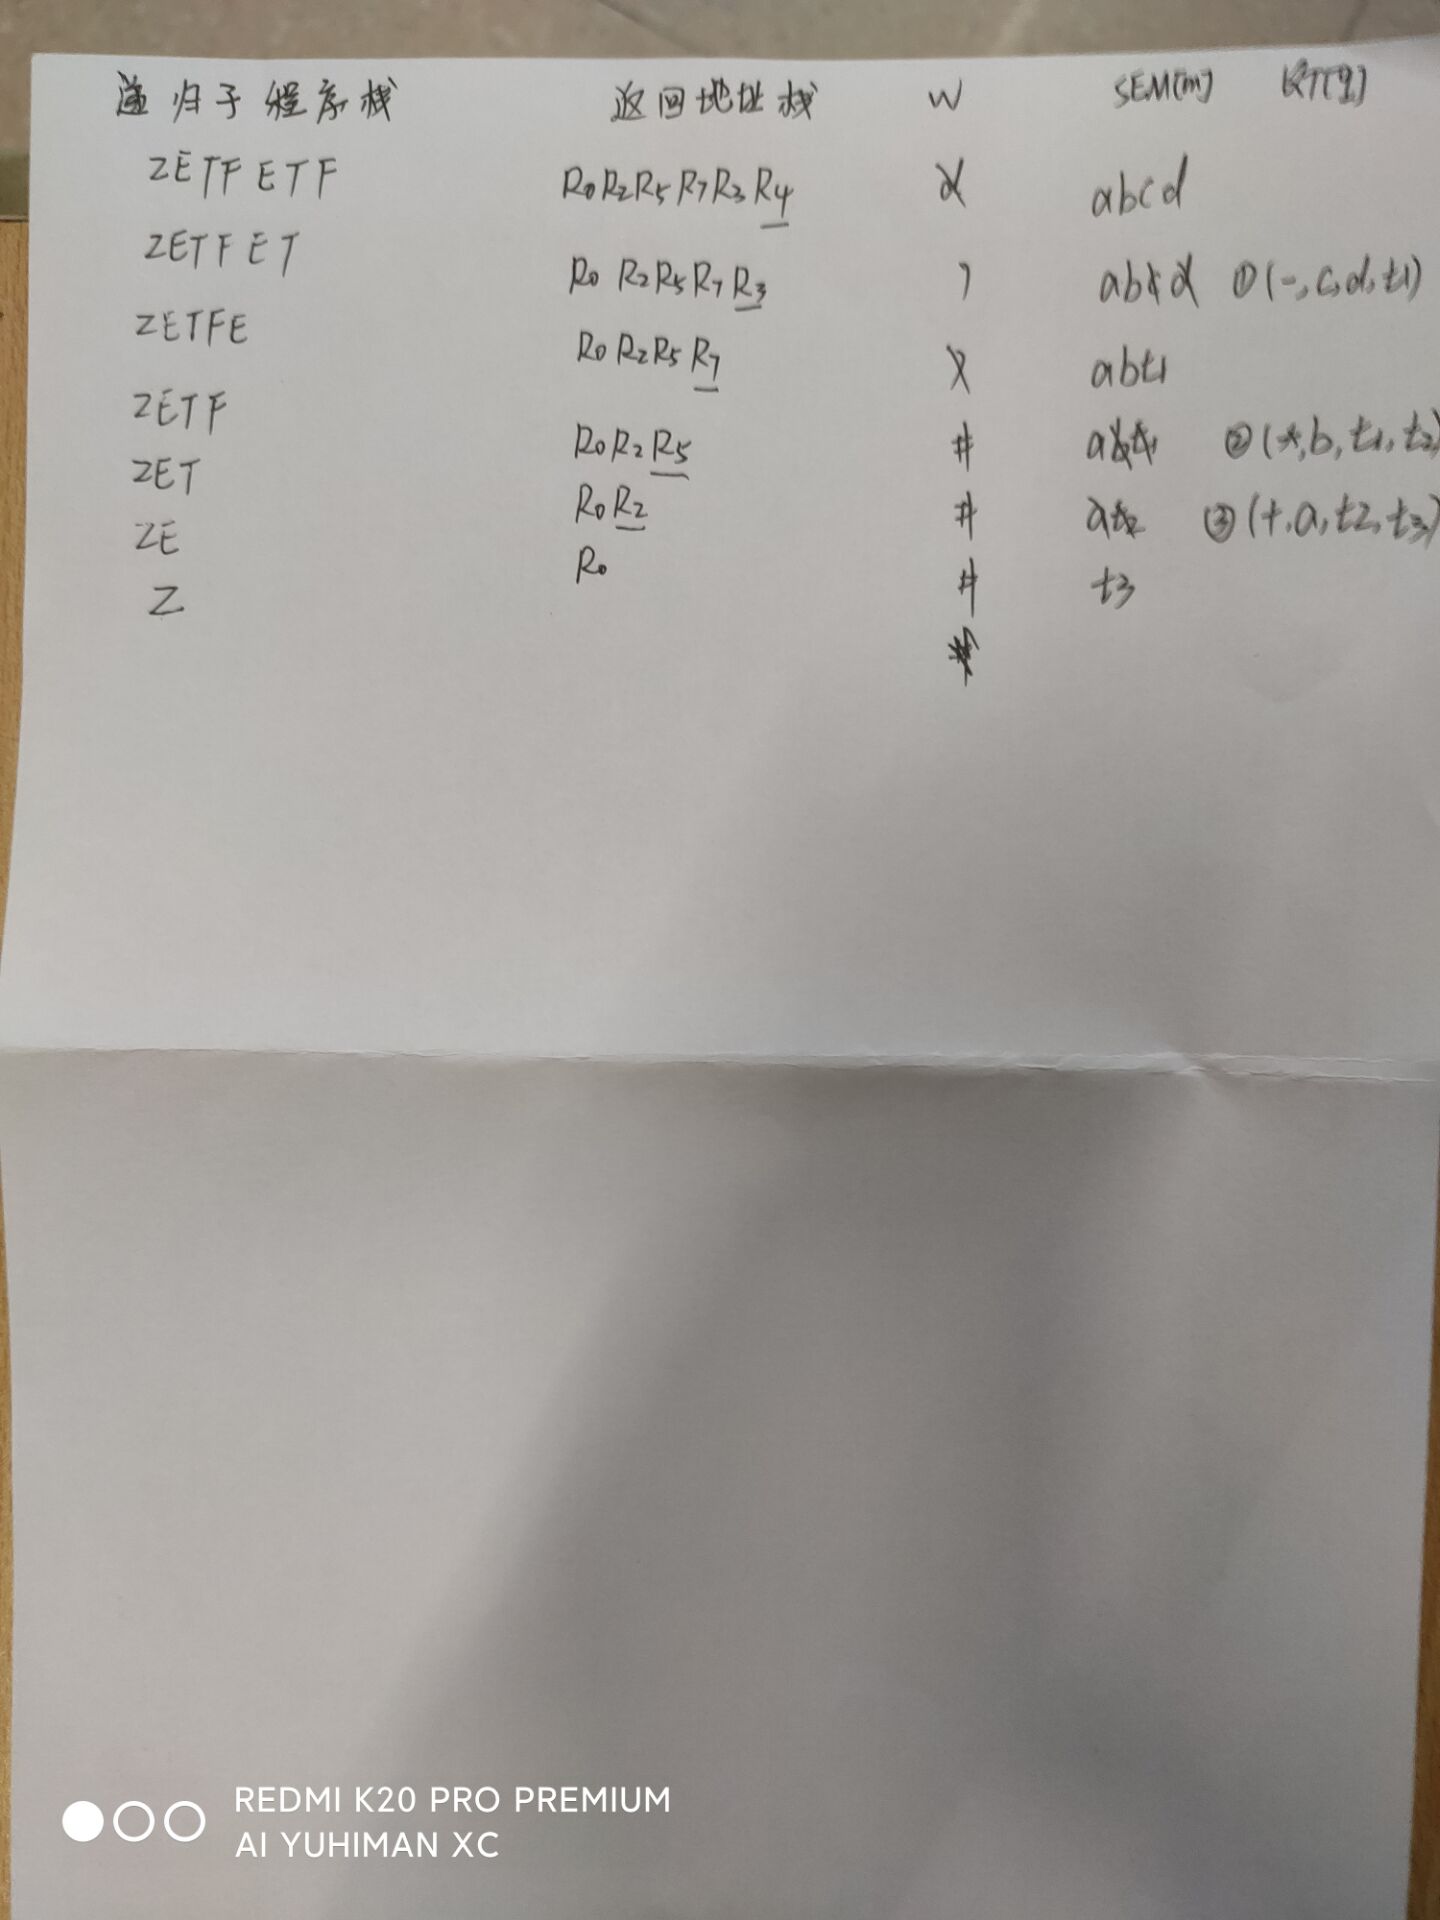 递归子程序栈 返回地址栈 W SEM[m] QT[q]
ZETFETF R0R2R5R7R3R4 abcd
ZETFET R0R2R5R7R3 ) ab ①(-,c,d,t1)
ZETFE R0R2R5R7 abt1
ZETF R0R2R5 # ②(*,b,t1,t2)
ZET R0R2 # at2 ③(+,a,t2,t3)
ZE R0 # t3
Z
REDMI K20 PRO PREMIUM
AI YUHIMAN XC